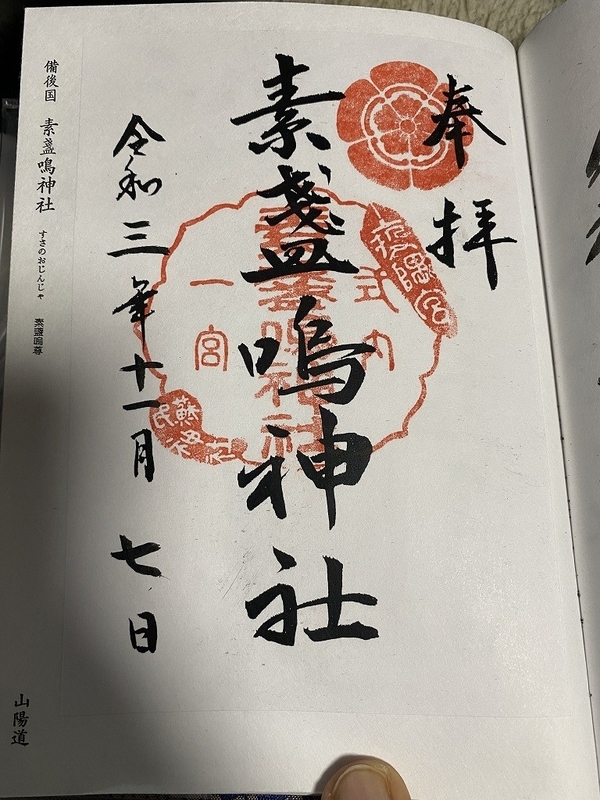 奉拝
素盞嗚神社
令和三年十一月七日
式内
一宮
素盞嗚神社
疫隅宮
蘇民神社
備後国 素盞嗚神社 すさのおじんじゃ 素盞嗚尊
山陽道